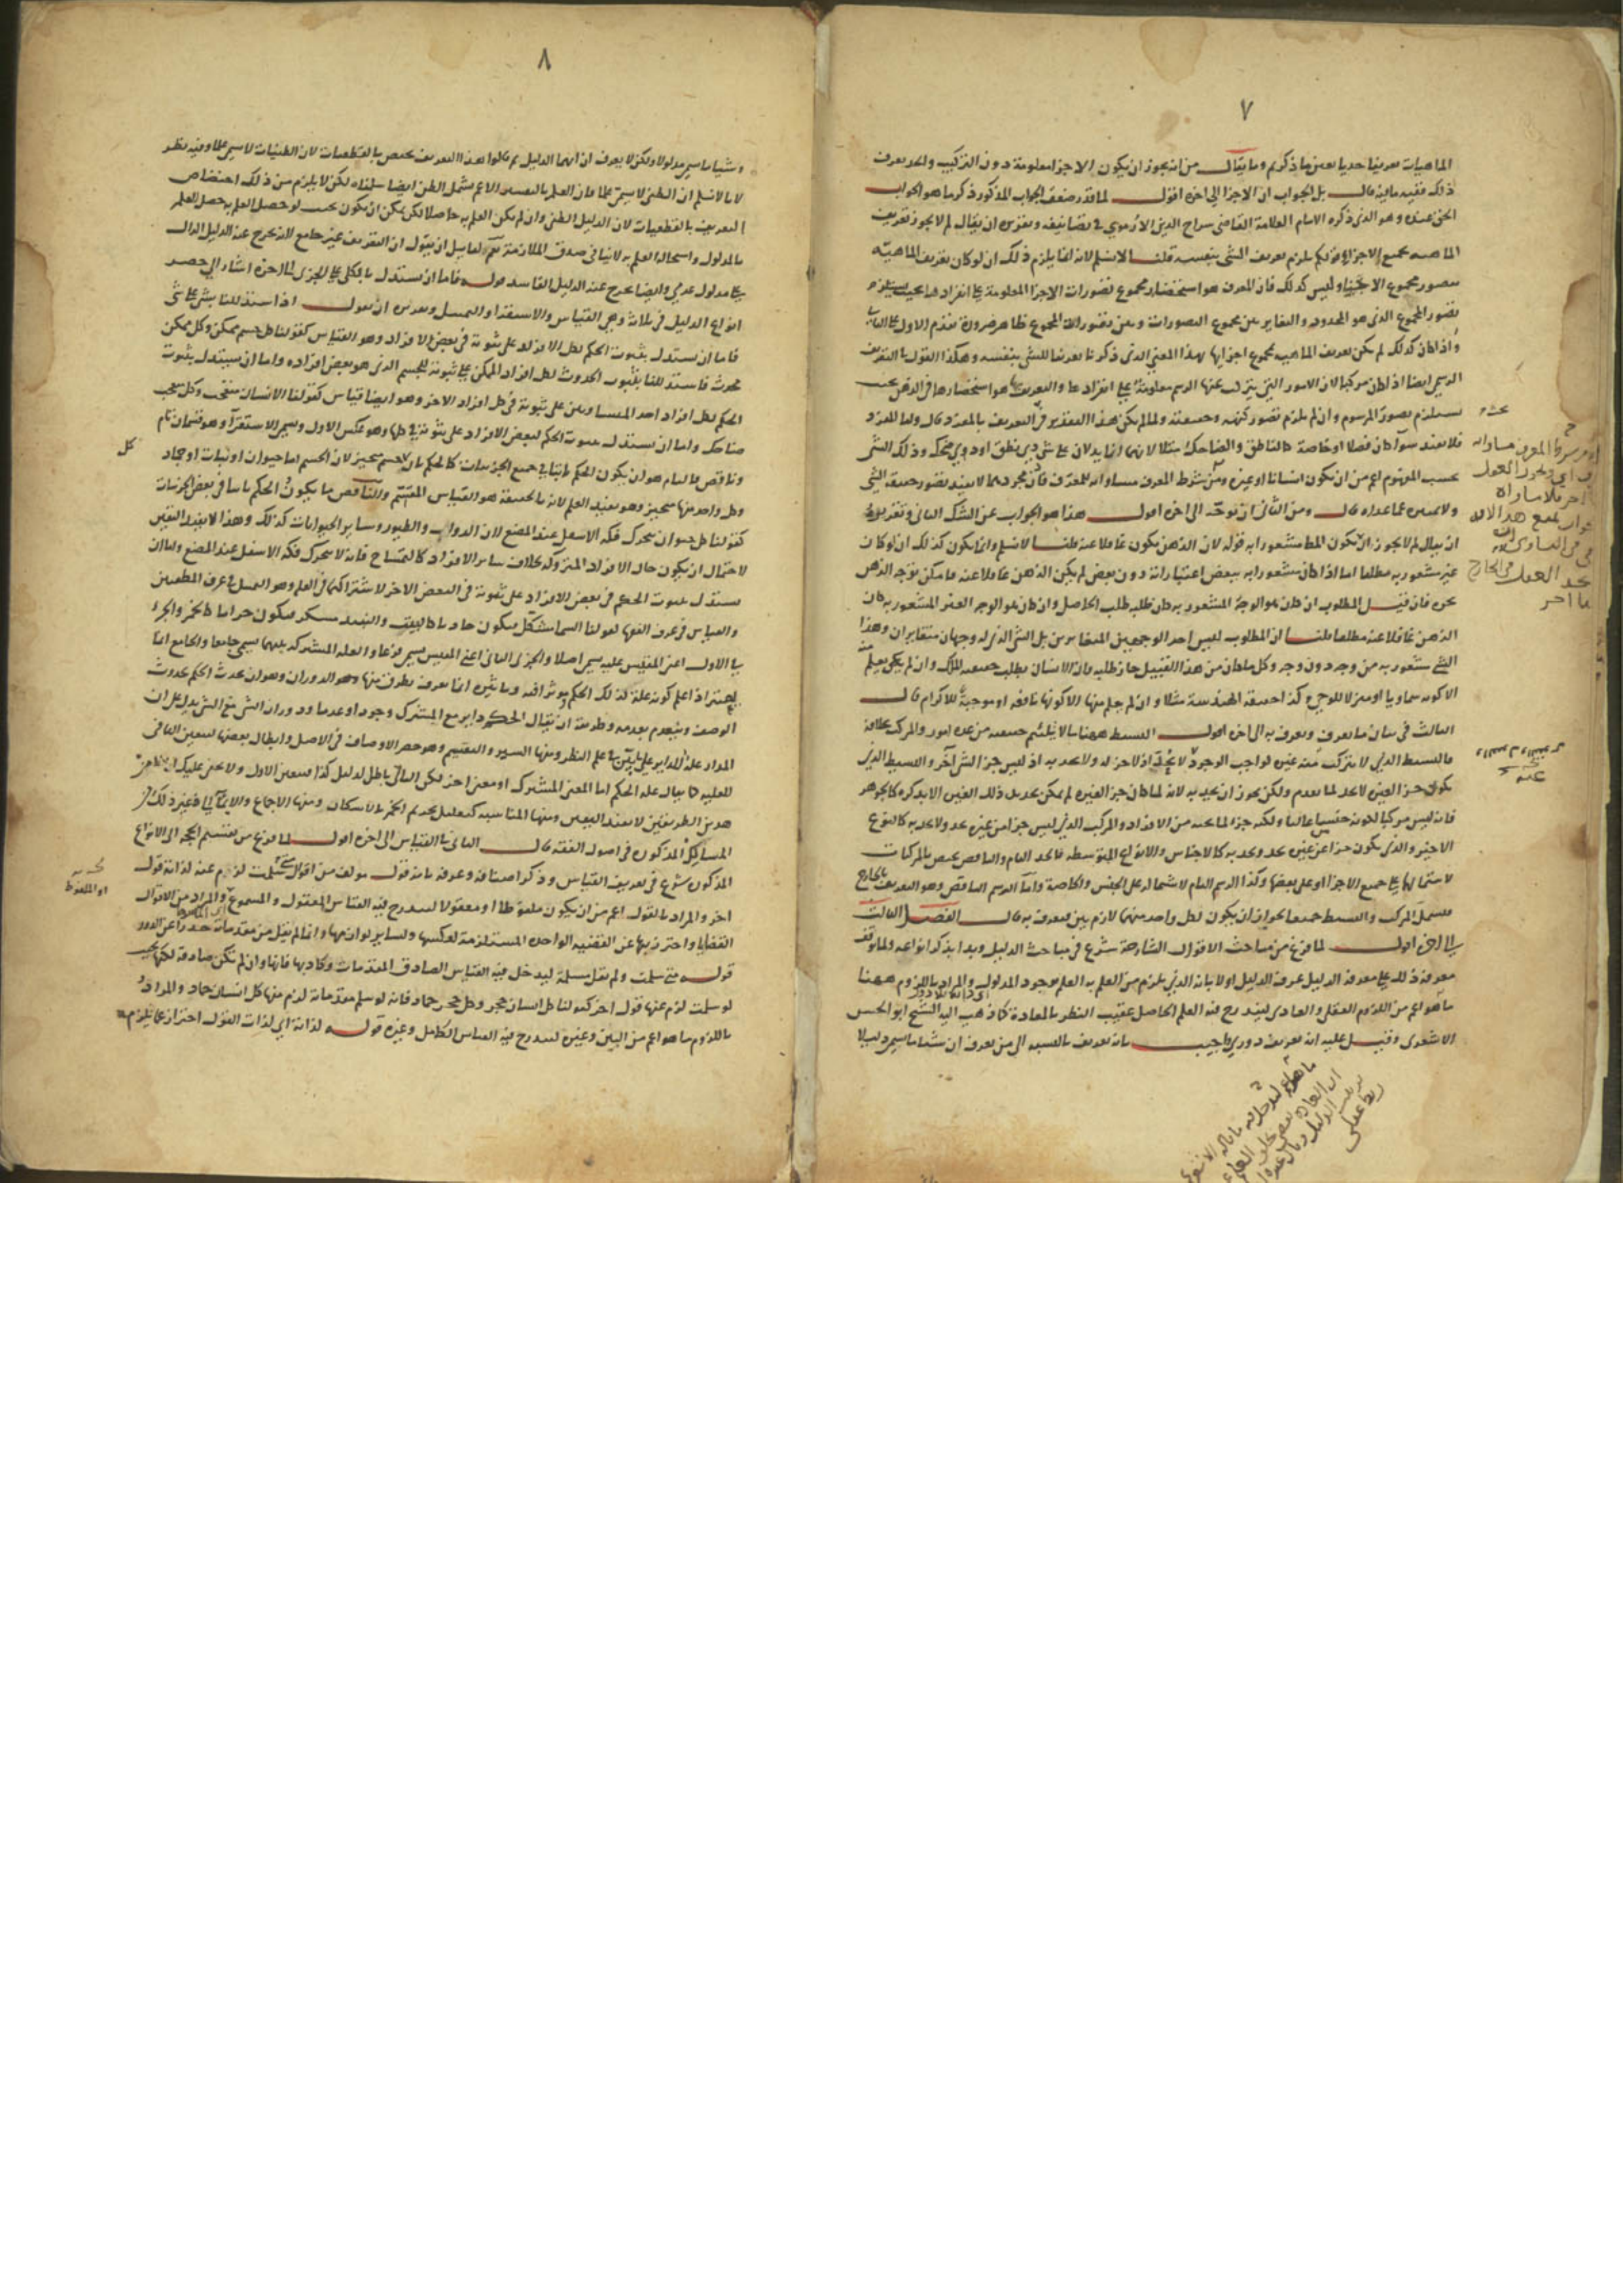 ٧
الماهيات تعريفا حديا بعين ما ذكرتم وما يقال من انه يجوز ان يكون الاجزا معلومة دون التركيب والحد يعرف
ذلك ففيه ما فيه قال بل الجواب ان الاجزا الى اخره اقول لما قدر ضعف الجواب المذكور ذكر ما هو الجواب
الحق عنده وهو الذي ذكره الامام العلامة القاضي سراج الدين الارموي في تصانيفه وتقريره ان يقال لم لا يجوز تعريف
الماهية بجميع الاجزا قولكم يلزم تعريف الشى بنفسه قلنا لا نسلم لانه انما يلزم ذلك ان لو كان تعريف الماهية
بتصور مجموع الاجزا وليس كذلك فان المعرف هو استحضار مجموع تصورات الاجزا المعلومة على انفرادها بحيث يستلزم
تصور المجموع الذي هو المحدود والتغاير بين مجموع التصورات وبين تصور المجموع ظاهر ضرورة تقدم الاول على الثاني
واذا كان كذلك لم يكن تعريف الماهية بمجموع اجزايها بهذا المعنى الذي ذكرنا تعريفا للشى بنفسه وهكذا القول بالتعريف
الرسمي ايضا اذا كان مركبا لان الامور التي يتركب عنها الرسم معلومة على انفرادها والتعريف بها هو استحضارها في الذهن بحيث
يستلزم تصور المرسوم وان لم يلزم تصور كنهه وحقيقته ولما لم يكن هذا التقدير في التعريف بالمفرد قال واما المفرد
فلا يفيد سوا كان فصلا او خاصة كالناطق والضاحك مثلا لانهما انما يدلان على شى ذي نطق او ذي ضحك وذلك الشى
بحسب المفهوم اعم من ان يكون انسانا او غيره ومن شرط المعرف مساواته للمعرف فان مجردهما لا يفيد تصور حقيقة الشى
ولا تميزه عما عداه قال ومن الثاني ان توجه الى اخره اقول هذا هو الجواب عن الشك الثاني وتقريره
ان يقال لم لا يجوز ان يكون المط مشعورا به قوله لان الذهن يكون غافلا عنه قلنا لا نسلم وانما يكون كذلك ان لو كان
غير مشعور به مطلقا اما اذا كان مشعورا به ببعض اعتباراته دون بعض لم يكن الذهن غافلا عنه فامكن توجه الذهن
نحوه فان قيل المطلوب ان كان هو الوجه المشعور به كان طلبه طلب الحاصل وان كان هو الوجه الغير المشعور به كان
الذهن غافلا عنه مطلقا قلنا ان المطلوب ليس احد الوجهين المتغايرين بل الشى الذي له وجهان متغايران وهذا
الشى مشعور به من وجه دون وجه وكل ما كان من هذا القبيل جاز طلبه فان الانسان يطلب حقيقة الملك وان لم يكن يعلم منه
الا كونه سماويا او منزلا للوحي وكذا حقيقة الهندسة مثلا وان لم يعلم منها الا كونها نافعة او موجبة للاكرام قال
الثالث في بيان ما يعرف ويعرف به الى اخره اقول البسيط ههنا ما لا يلتئم حقيقته من عدة امور والمركب بخلافه
فالبسيط الذي لا يتركب منه غيره كواجب الوجود لا يحد اذ لا جز له ولا يحد به اذ ليس جز الشى آخر والبسيط الذي
يكون جز الغيره لا يحد لما تقدم ولكن يجوز ان يحد به لانه لما كان جز الغيره لم يمكن تحديد ذلك الغير الا بذكره كالجوهر
فانه ليس مركبا لكونه جنسا عاليا ولكنه جزء لما تحته من الافراد والمركب الذي ليس جزا من غيره يحد ولا يحد به كالنوع
الاخير والذي يكون جزا عن غيره يحد ويحد به كالاجناس والانواع المتوسطة فالحد التام والناقص يختص بالمركبات
لاشتمالها على جميع الاجزا او على بعضها وكذا الرسم التام لاشتماله على الجنس والخاصة واما الرسم الناقص وهو التعريف بالخارج
فيشمل المركب والبسيط جميعا لجواز ان يكون لكل واحد منهما لازم بين يعرف به قال الفصل الثالث
الى اخره اقول لما فرغ من مباحث الاقوال الشارحة شرع في مباحث الدليل وبدا بذكر انواعه ولما توقف
معرفة ذلك على معرفة الدليل عرف الدليل اولا بانه الذي يلزم من العلم به العلم بوجود المدلول والمراد باللزوم ههنا
ما هو اعم من اللزوم العقلي والعادي ليندرج فيه العلم الحاصل عقيب النظر بالعادة كما ذهب اليه الشيخ ابو الحسن
الاشعري وقيل عليه انه تعريف دوري واجيب بانه تعريف بالنسبة الى من يعرف ان شيئا ما يسمى دليلا
٨
وشيا ما يسمى مدلولا ولكن لا يعرف ان ايهما الدليل ثم قالوا هذا التعريف يختص بالقطعيات لان الظنيات لا يسمى علما وفيه نظر
لانا لا نسلم ان الظن لا يسمى علما فان العلم بالتفسير الاعم يشمل الظن ايضا سلمناه لكن لا يلزم من ذلك اختصاص
التعريف بالقطعيات لان الدليل الظني وان لم يكن العلم به حاصلا لكن يمكن ان يكون بحيث لو حصل العلم به حصل العلم
بالمدلول واستحالة العلم به لا ينافي صدق الملازمة نعم لقايل ان يقول ان التعريف غير جامع لانه يخرج عنه الدليل الدال
على مدلول عدمي وايضا يخرج عنه الدليل الفاسد قوله فاما ان يستدل بالكلي على الجزى الى اخره اشارة الى حصر
انواع الدليل في ثلاث وهي القياس والاستقرا والتمثيل وتقريره ان نقول اذا استدللنا بشى على شى
فاما ان يستدل بثبوت الحكم لكل الافراد على ثبوته في بعض الافراد وهو القياس كقولنا كل جسم ممكن وكل ممكن
محدث فاستدللنا بثبوت الحدوث لكل افراد الممكن على ثبوته للجسم الذي هو بعض افراده واما ان يستدل بثبوت
الحكم لكل افراد احد المتساويين على ثبوته في كل افراد الاخر وهو ايضا قياس كقولنا الانسان متعجب وكل متعجب
ضاحك واما ان يستدل بثبوت الحكم لبعض الافراد على ثبوته في كلها وهو عكس الاول ويسمى الاستقرآ وهو قسمان تام
وناقص فالتام هو ان يكون الحكم ثابتا في جميع الجزئيات كالحكم بان كل جسم متحيز لان الجسم اما حيوان او نبات او جماد
وكل واحد منها متحيز وهو يفيد العلم لانه بالحقيقة هو القياس المقسم والناقص ما يكون الحكم ثابتا في بعض الجزئيات
كقولنا كل حيوان يتحرك فكه الاسفل عند المضغ لان الدواب والطيور وساير الحيوانات كذلك وهذا لا يفيد اليقين
لاحتمال ان يكون حال الافراد المتروكة بخلاف ساير الافراد كالتمساح فانه لا يتحرك فكه الاسفل عند المضغ واما ان
يستدل بثبوت الحكم في بعض الافراد على ثبوته في البعض الاخر لاشتراكهما في العلة وهو التمثيل في عرف المنطقيين
والقياس في عرف الفقها كقولنا السما مشكل فيكون حادثا كالبيت والنبيذ مسكر فيكون حراما كالخمر والجزء
الاول اعني المقيس عليه يسمى اصلا والجزى الثاني اعني المقيس يسمى فرعا والعلة المشتركة بينهما يسمى جامعا والجامع انما
يعتبر اذا علم كونه علة لذلك الحكم مؤثرا فيه وتاثيره انما يعرف بطرق منها وهو الدوران وهو ان يحدث الحكم بحدوث
الوصف وينعدم بعدمه وطريقه ان يقال الحكم داير مع المشترك وجودا وعدما ودوران الشى مع الشى يدل على ان
المدار علة للداير على ما بين في علم النظر ومنها السبر والتقسيم وهو حصر الاوصاف في الاصل وابطال بعضها ليتعين الباقي
للعلية كما يقال علة الحكم اما المعنى المشترك او معنى اخر لكن الثاني باطل لدليل كذا فيتعين الاول ولا يخفى عليك ان
هذين الطريقين لا يفيد اليقين ومنها المناسبة كتعليل تحريم الخمر بالاسكار ومنها الاجماع والايما الى غير ذلك من
المسالك المذكورة في اصول الفقه قال الثاني بالقياس الى اخره اقول لما فرغ من تقسيم الحجة الى الانواع
المذكورة شرع في تعريف القياس وذكر اصنافه وعرفه بانه قول مولف من اقوال متى سلمت لزم عنه لذاته قول
اخر والمراد بالقول اعم من ان يكون ملفوظا او معقولا ليندرج فيه القياس المعقول والمسموع والمراد من الاقوال
القضايا واحترز بها عن القضية الواحدة المستلزمة لعكسها ولساير لوازمها وانما لم يقل من مقدمات حذرا عن الدور
قوله متى سلمت ولم يقل مسلمة ليدخل فيه القياس الصادق المقدمات وكاذبها فانها وان لم تكن صادقة لكنها بحيث
لو سلمت لزم عنها قول اخر كقولنا كل انسان حجر وكل حجر جماد فانه لو سلم مقدماته لزم منها كل انسان جماد والمراد
باللزوم ما هو اعم من البين وغيره ليندرج فيه القياس الكامل وغيره قوله لذاته اي لذات القول احتراز عما يلزم